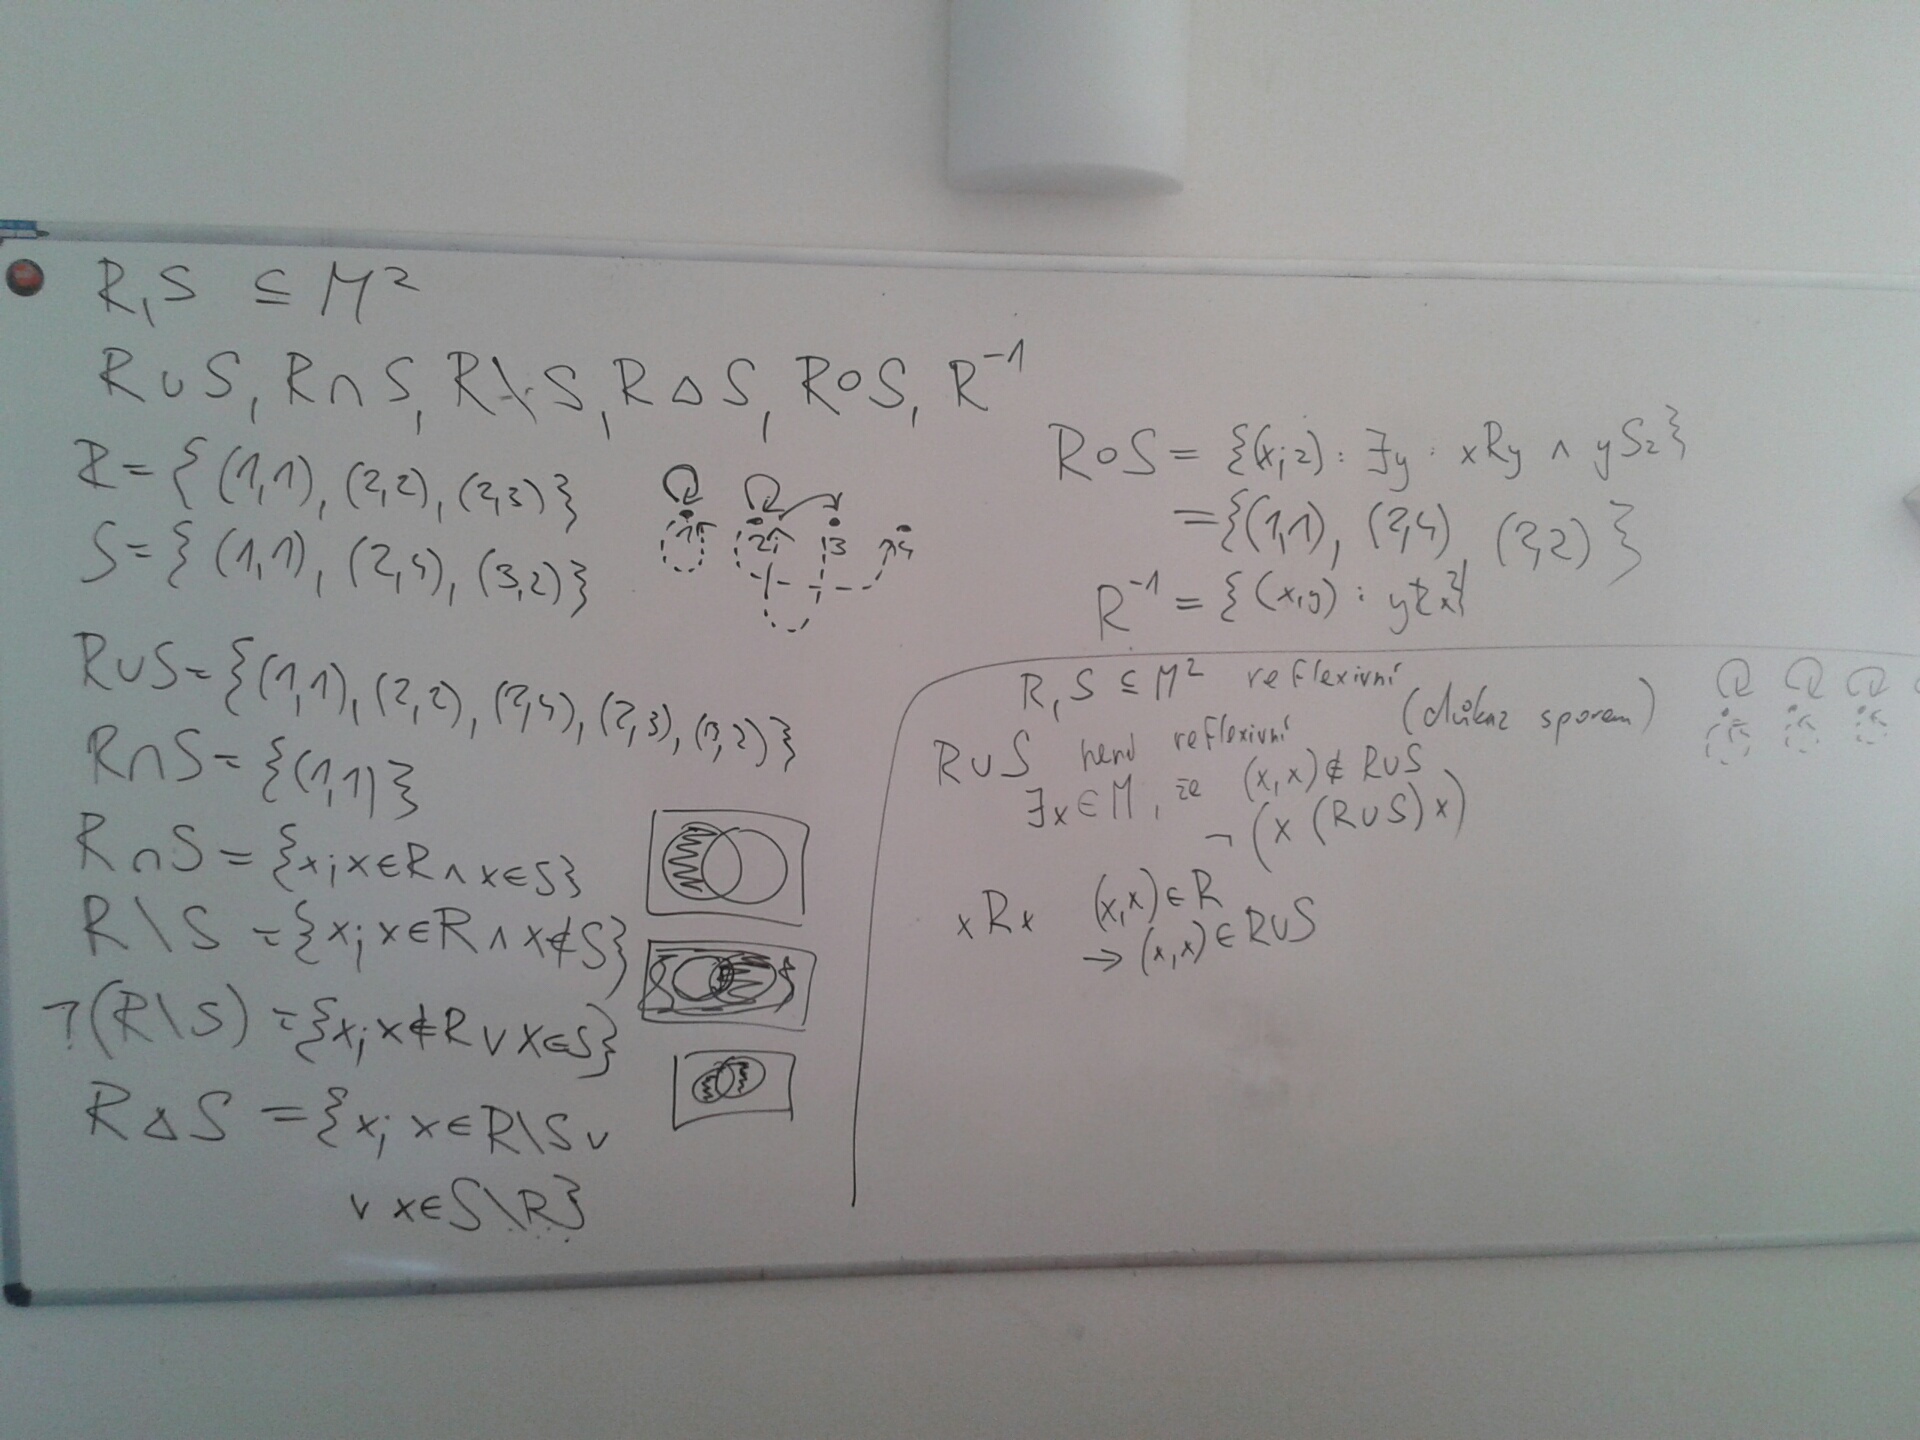 R,S ⊆ M²
R∪S, R∩S, R\S, R△S, R∘S, R⁻¹
R = {(1,1), (2,2), (2,3)}
S = {(1,1), (2,4), (3,2)}
1 2 3 4
R∪S = {(1,1), (2,2), (2,4), (2,3), (3,2)}
R∩S = {(1,1)}
R∩S = {x; x∈R ∧ x∈S}
R\S = {x; x∈R ∧ x∉S}
¬(R\S) = {x; x∉R ∨ x∈S}
R△S = {x; x∈R\S ∨
∨ x∈S\R}
R∘S = {(x;z): ∃y: xRy ∧ ySz}
= {(1,1), (2,4), (2,2)}
R⁻¹ = {(x,y): yRx}
R,S ⊆ M² reflexivní
(důkaz sporem)
R∪S není reflexivní
∃x∈M, že (x,x)∉R∪S
¬(x (R∪S) x)
xRx (x,x)∈R
→ (x,x)∈R∪S